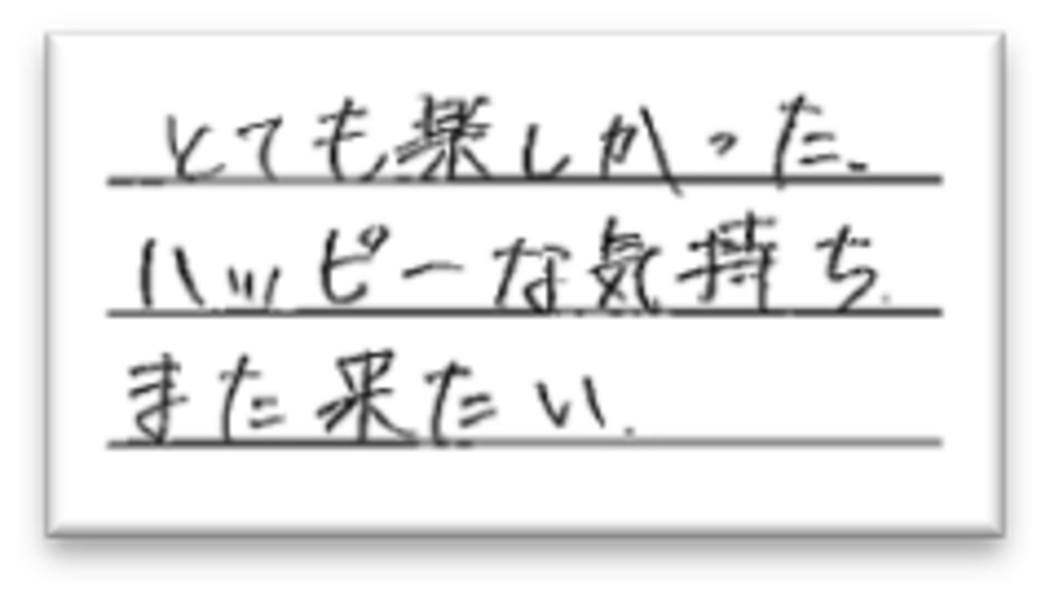 とても楽しかった.
ハッピーな気持ち.
また来たい.